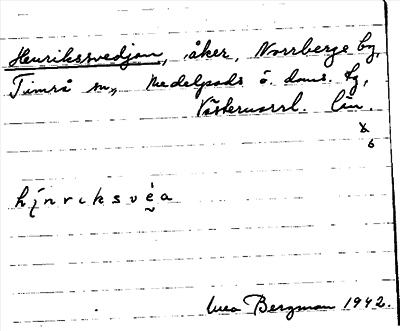 Henrikssvedjan, åker, Norrberge by,
Timrå sn, Medelpads ö. doms. tg,
Västernorrl. län.
x
6
hinriksvéa
Bergman 1942.